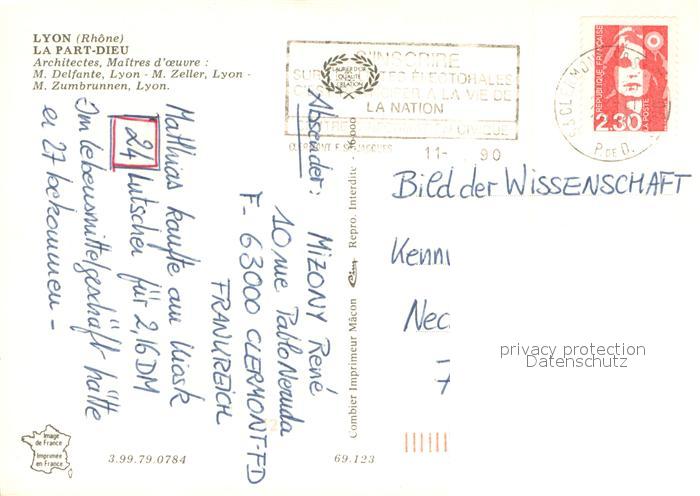 LYON (Rhône)
LA PART-DIEU
Architectes, Maîtres d'œuvre :
M. Delfante, Lyon - M. Zeller, Lyon -
M. Zumbrunnen, Lyon.
Matthias kaufte am Kiosk
24 Lutscher für 2,16 DM
Im Lebensmittelgeschäft hätte
er 27 bekommen -
Absender: MIZONY René
10 rue Pablo Neruda
F- 63000 CLERMONT-FD
FRANKREICH
Combier Imprimeur Mâcon Repro. Interdite
S'INSCRIRE
SUR LES LISTES ÉLECTORALES
C'EST PARTICIPER A LA VIE DE
LA NATION
11- 90
P. DE D.
REPUBLIQUE FRANÇAISE
2,30
LA POSTE
Bild der WISSENSCHAFT
Kenn
Nec
privacy protection
Datenschutz
Image
de France
Imprimée
en France
3.99.79.0784
69.123